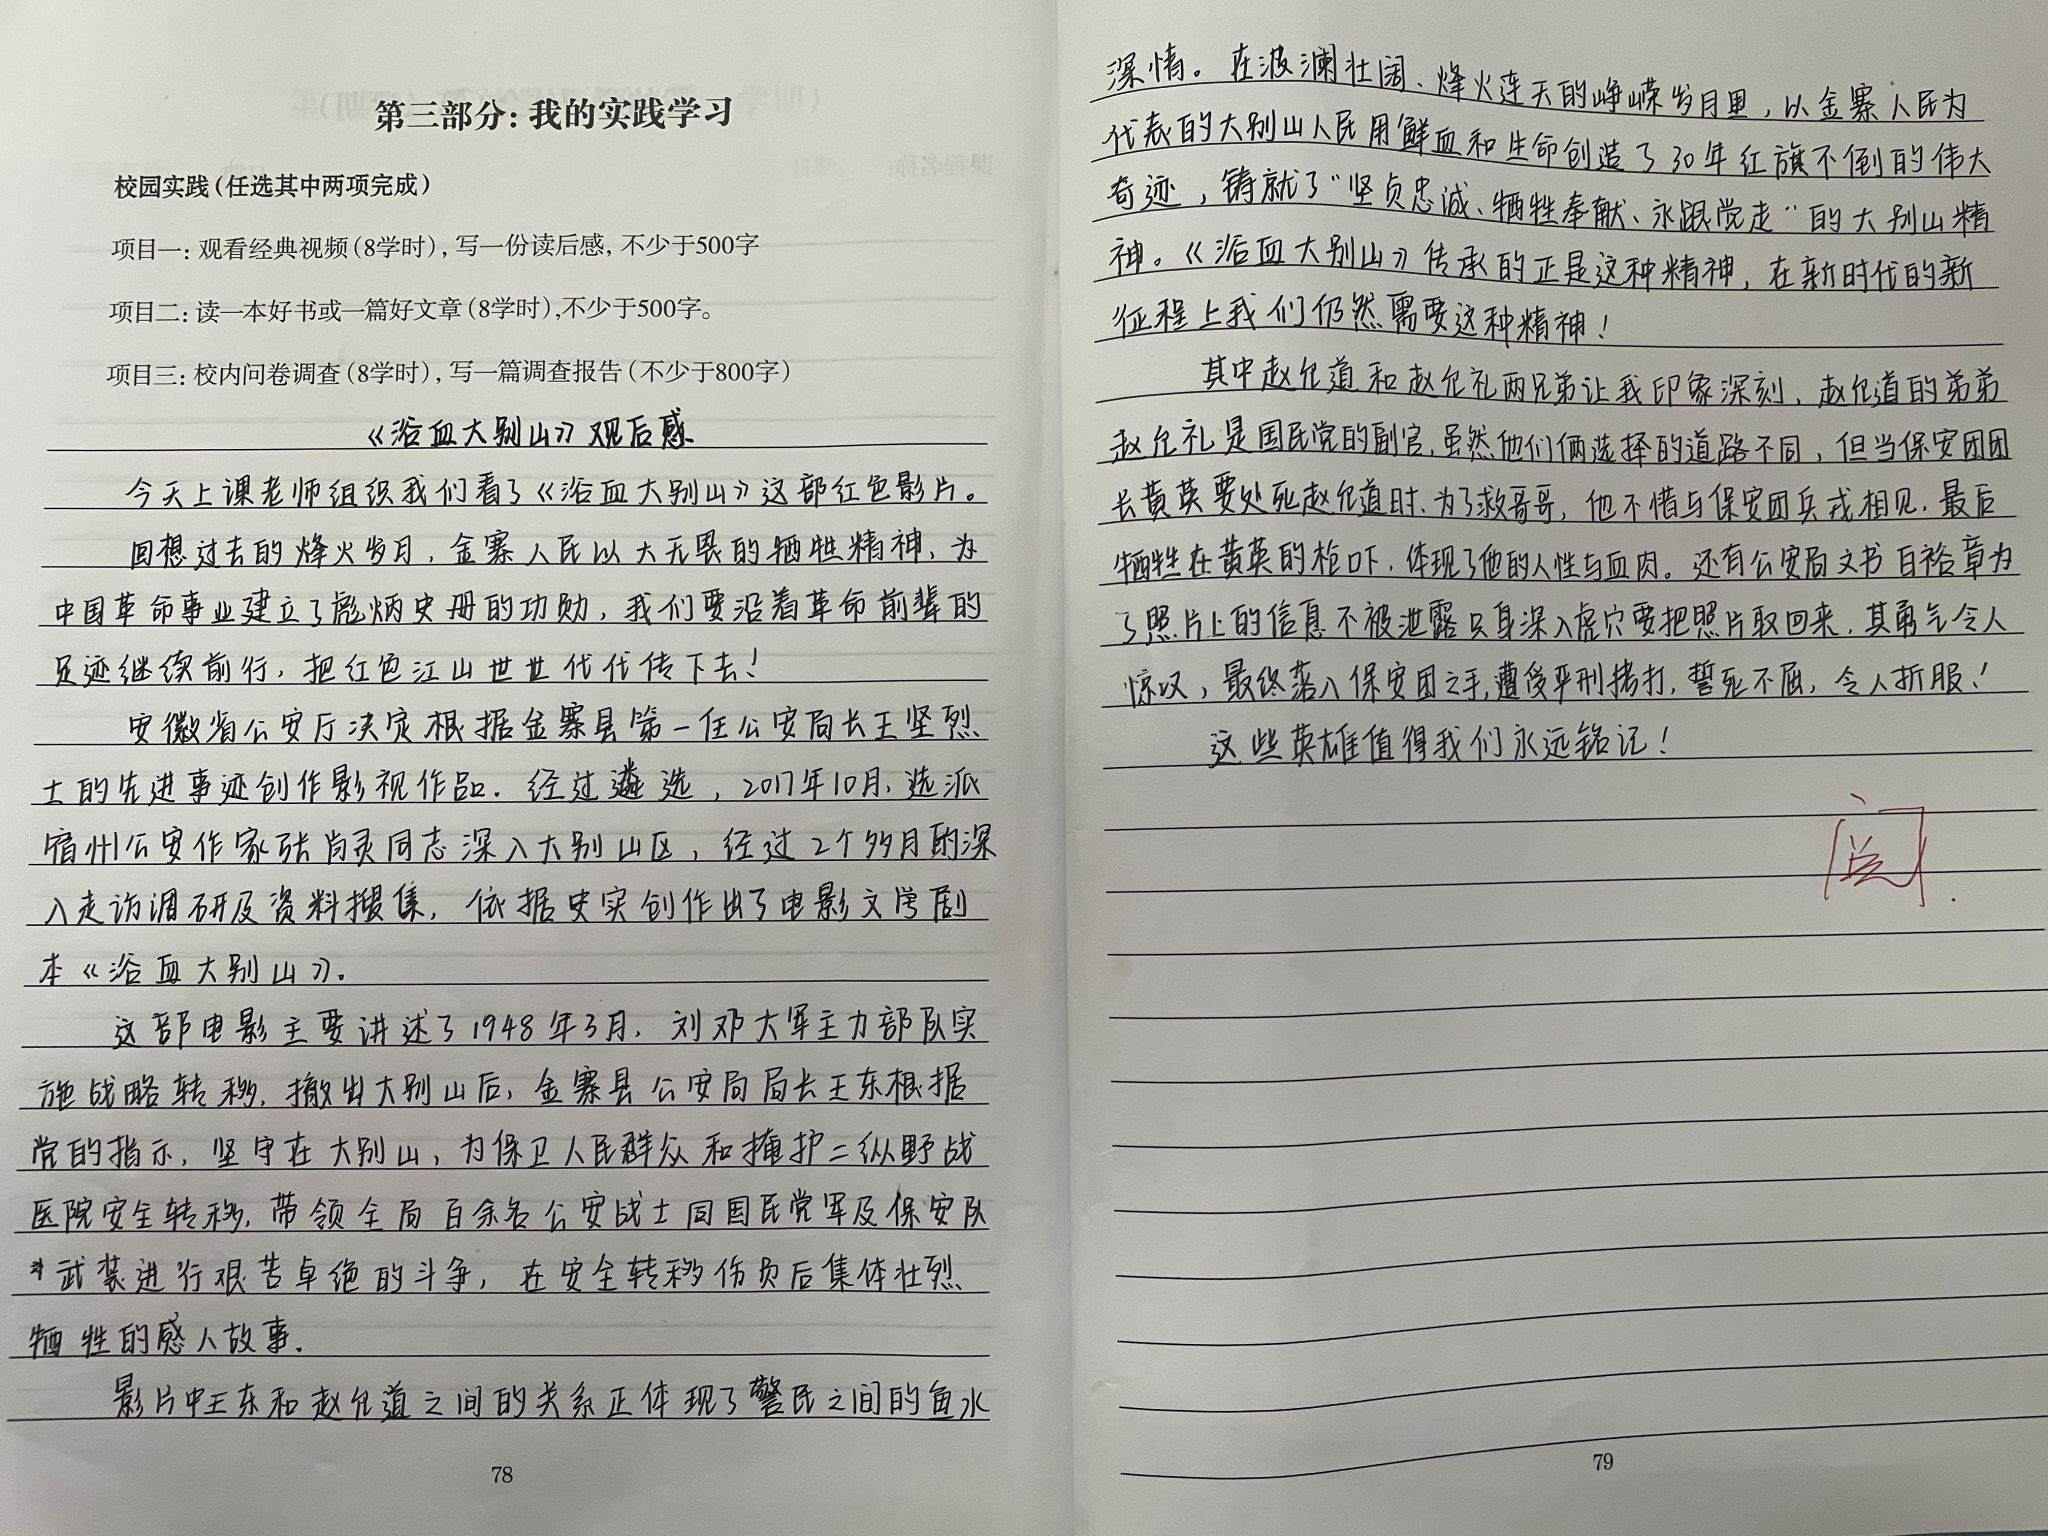 第三部分：我的实践学习
校园实践（任选其中两项完成）
项目一：观看经典视频（8学时），写一份读后感，不少于500字
项目二：读一本好书或一篇好文章（8学时），不少于500字。
项目三：校内问卷调查（8学时），写一篇调查报告（不少于800字）
《浴血大别山》观后感
今天上课老师组织我们看了《浴血大别山》这部红色影片。
回想过去的烽火岁月，金寨人民以大无畏的牺牲精神，为
中国革命事业建立了彪炳史册的功勋，我们要沿着革命前辈的
足迹继续前行，把红色江山世世代代传下去！
安徽省公安厅决定根据金寨县第一任公安局长王坚烈
士的先进事迹创作影视作品．经过遴选，2017年10月，选派
宿州公安作家张尚灵同志深入大别山区，经过2个多月的深
入走访调研及资料搜集，依据史实创作出了电影文学剧
本《浴血大别山》．
这部电影主要讲述了1948年3月，刘邓大军主力部队实
施战略转移，撤出大别山后，金寨县公安局局长王东根据
党的指示，坚守在大别山，为保卫人民群众和掩护二纵野战
医院安全转移，带领全局百余名公安战士同国民党军及保安队
武装进行艰苦卓绝的斗争，在安全转移伤员后集体壮烈
牺牲的感人故事．
影片中王东和赵允道之间的关系正体现了警民之间的鱼水
78
深情。在波澜壮阔、烽火连天的峥嵘岁月里，以金寨人民为
代表的大别山人民用鲜血和生命创造了30年红旗不倒的伟大
奇迹，铸就了“坚贞忠诚、牺牲奉献、永跟党走”的大别山精
神。《浴血大别山》传承的正是这种精神，在新时代的新
征程上我们仍然需要这种精神！
其中赵允道和赵允礼两兄弟让我印象深刻，赵允道的弟弟
赵允礼是国民党的副官，虽然他们俩选择的道路不同，但当保安团团
长黄英要处死赵允道时、为了救哥哥，他不惜与保安团兵戎相见，最后
牺牲在黄英的枪口下，体现了他的人性与血肉。还有公安局文书白裕章为
了照片上的信息不被泄露只身深入虎穴要把照片取回来，其勇气令人
惊叹，最终落入保安团之手，遭受严刑拷打，誓死不屈，令人折服！
这些英雄值得我们永远铭记！
阅
79